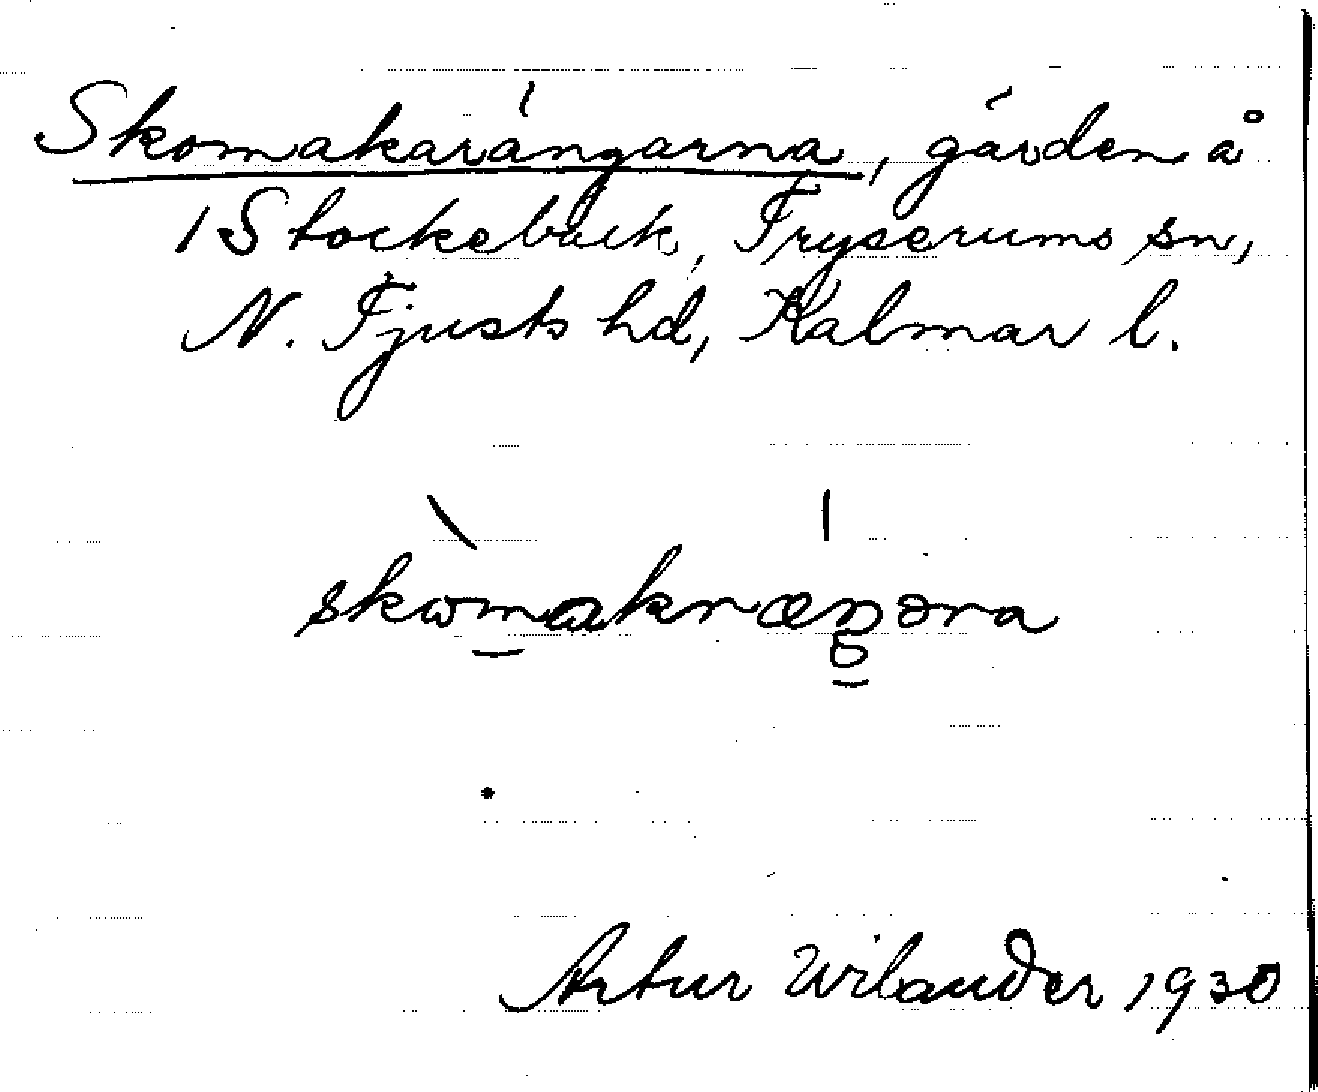 Skomakarängarna, gärden å
1 Stockebäck, Tryserums sn,
N. Tjusts hd, Kalmar l.
Artur Wilander 1930